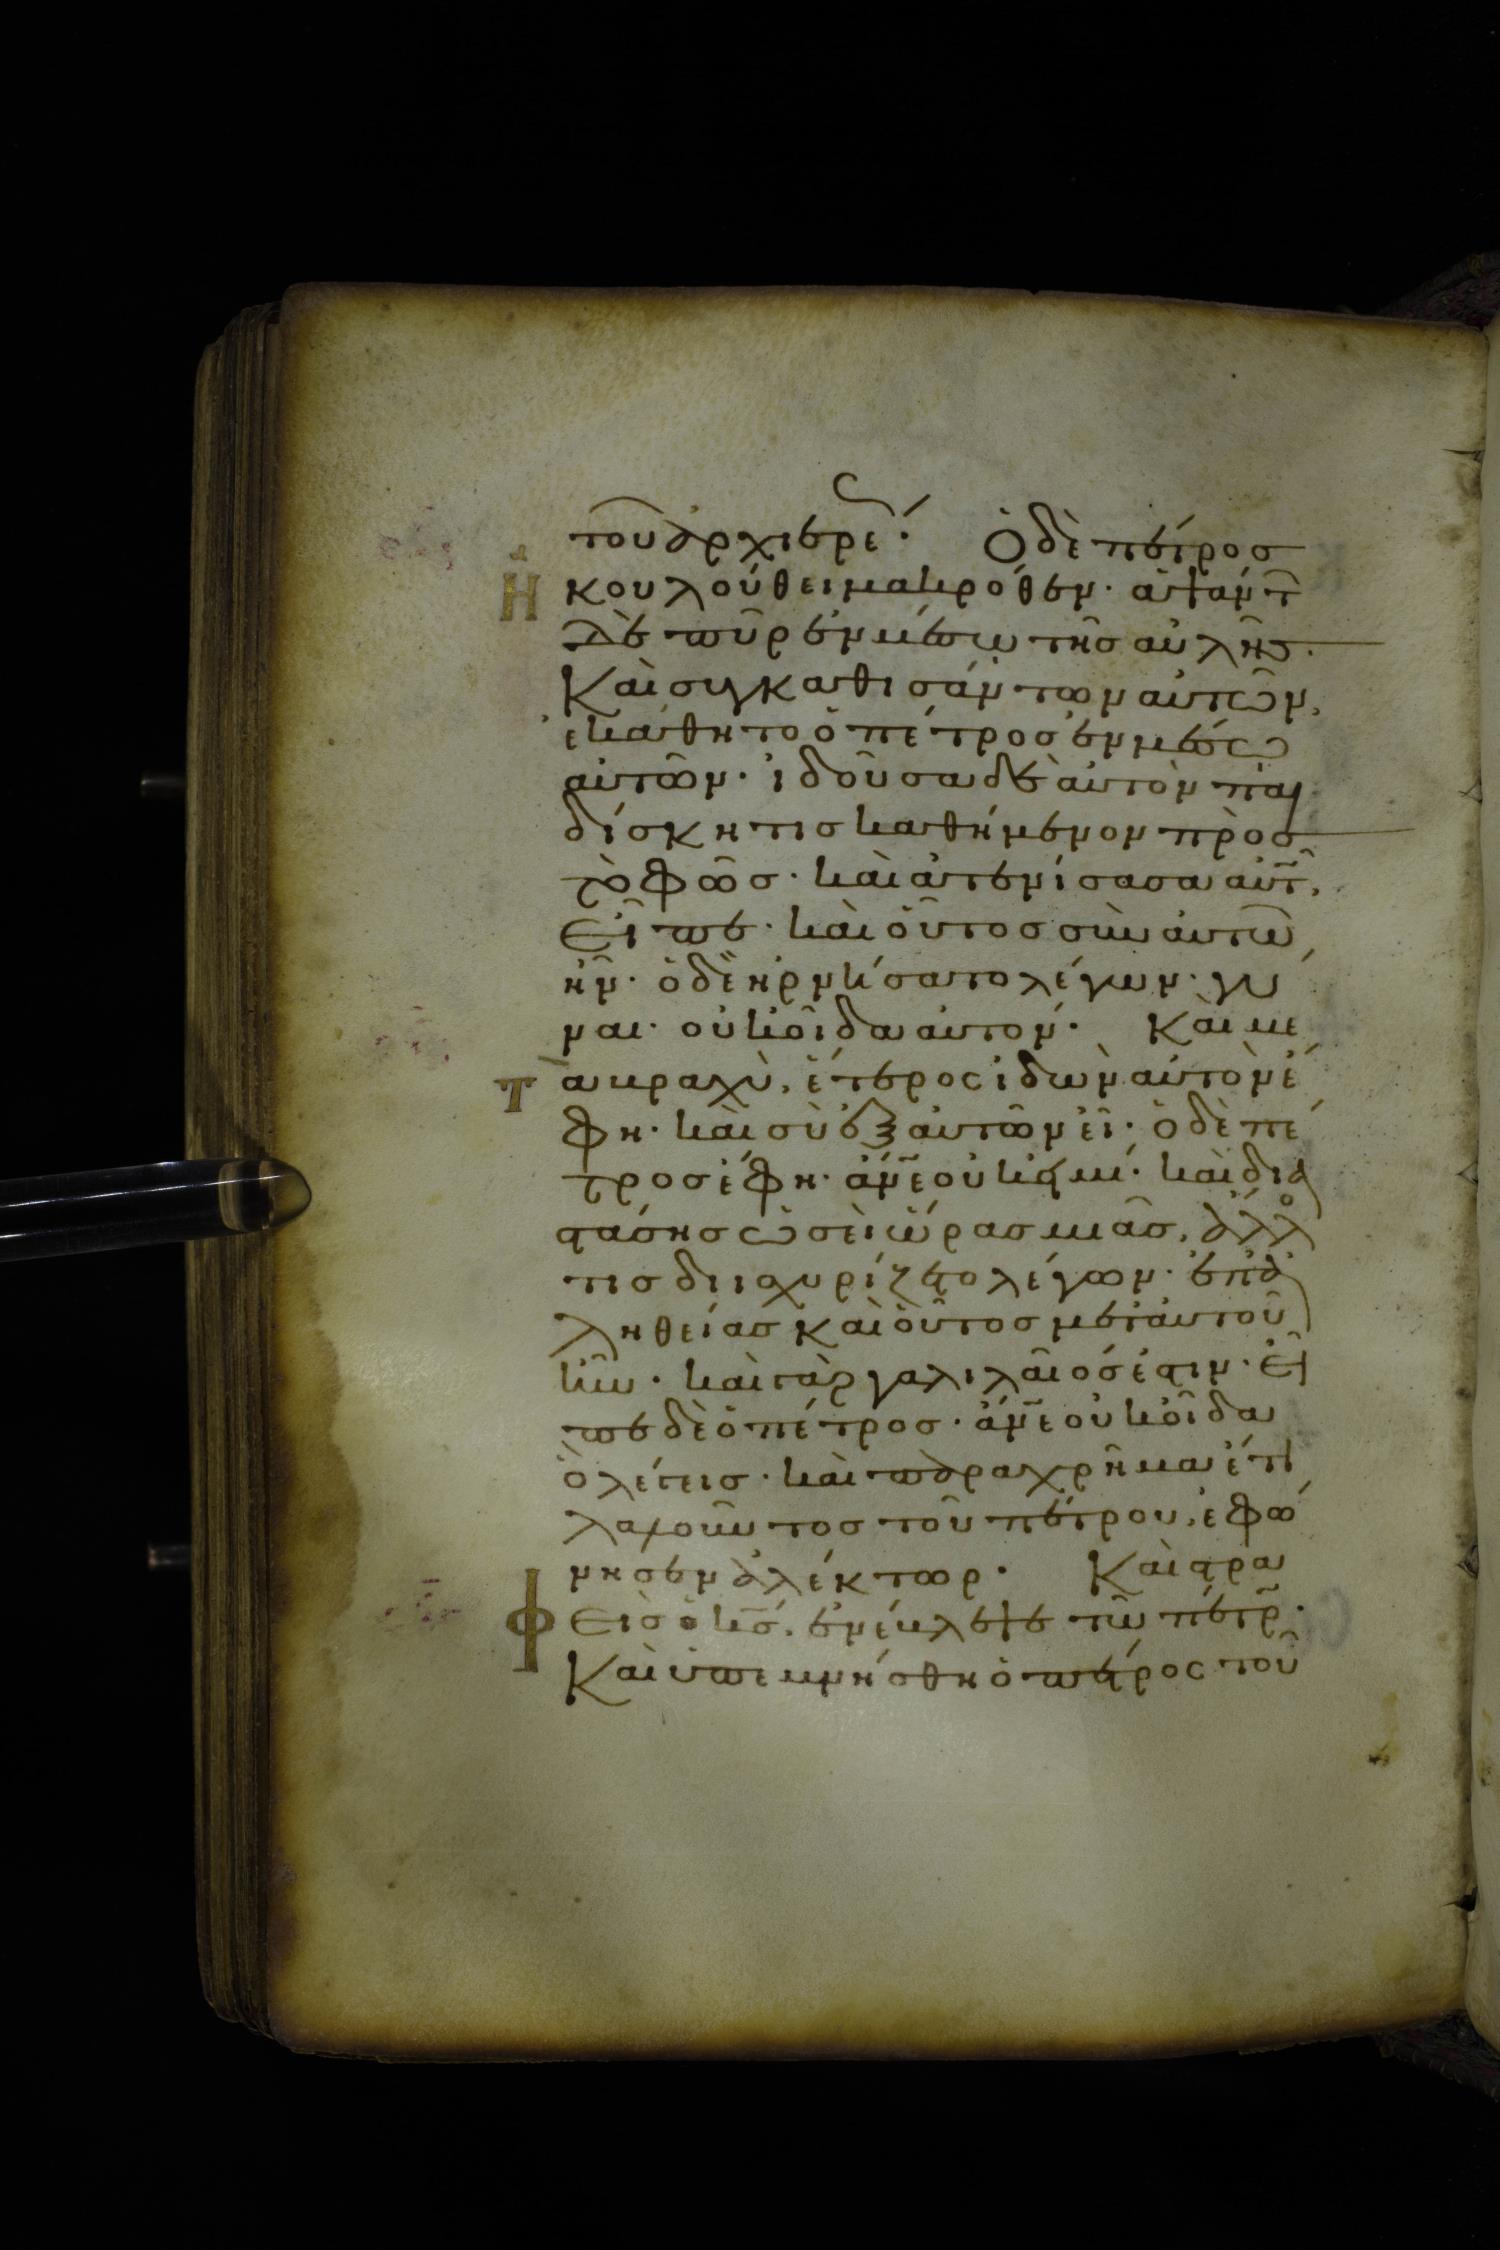 τοῦ ἀρχιερέ· Ὁ δὲ πέτρος
Ἠκουλούθει μακρόθεν· ἁψάντ
δὲ πῦρ ἐν μέσω τῆς αὐλῆς·
Καὶ συγκαθισάντων αὐτῶν,
ἐκάθητο ὁ πέτρος ἐν μέσω
αὐτῶν· ἰδοῦσα δὲ αὐτὸν παι
δίσκη τις καθήμενον πρὸς
τὸ φῶς· καὶ ἀτενίσασα αὐτ,
Εἶπε· καὶ οὗτος σὺν αὐτῶ
ἦν· ὁ δὲ ἠρνήσατο λέγων· γύ
ναι· οὐκ οἶδα αὐτόν· Καὶ με
Τὰ βραχὺ, ἕτερος ἰδὼν αὐτὸν ἔ
φη· καὶ σὺ ἐξ αὐτῶν εἶ· ὁ δὲ πέ
τρος ἔφη· ἄνε οὐκ εἰμί· καὶ δια
στάσης ὡσεὶ ὥρας μιᾶς, ἄλλο
τις διισχυρίζετο λέγων· ἐπ' ἀ
ληθείας καὶ οὗτος μετ' αὐτοῦ
ἦν· καὶ γὰρ γαλιλαῖός ἐστιν· Εἶ
πε δὲ ὁ πέτρος· ἄνε οὐκ οἶδα
ὃ λέγεις· καὶ παραχρῆμα ἔτι
λαλοῦντος τοῦ πέτρου, ἐφώ
νησεν ἀλέκτωρ· Καὶ στρα
Φεὶς ὁ κς, ἐνέβλεψε τῶ πέτρ·
Καὶ ὑπεμνήσθη ὁ πέτρος τοῦ